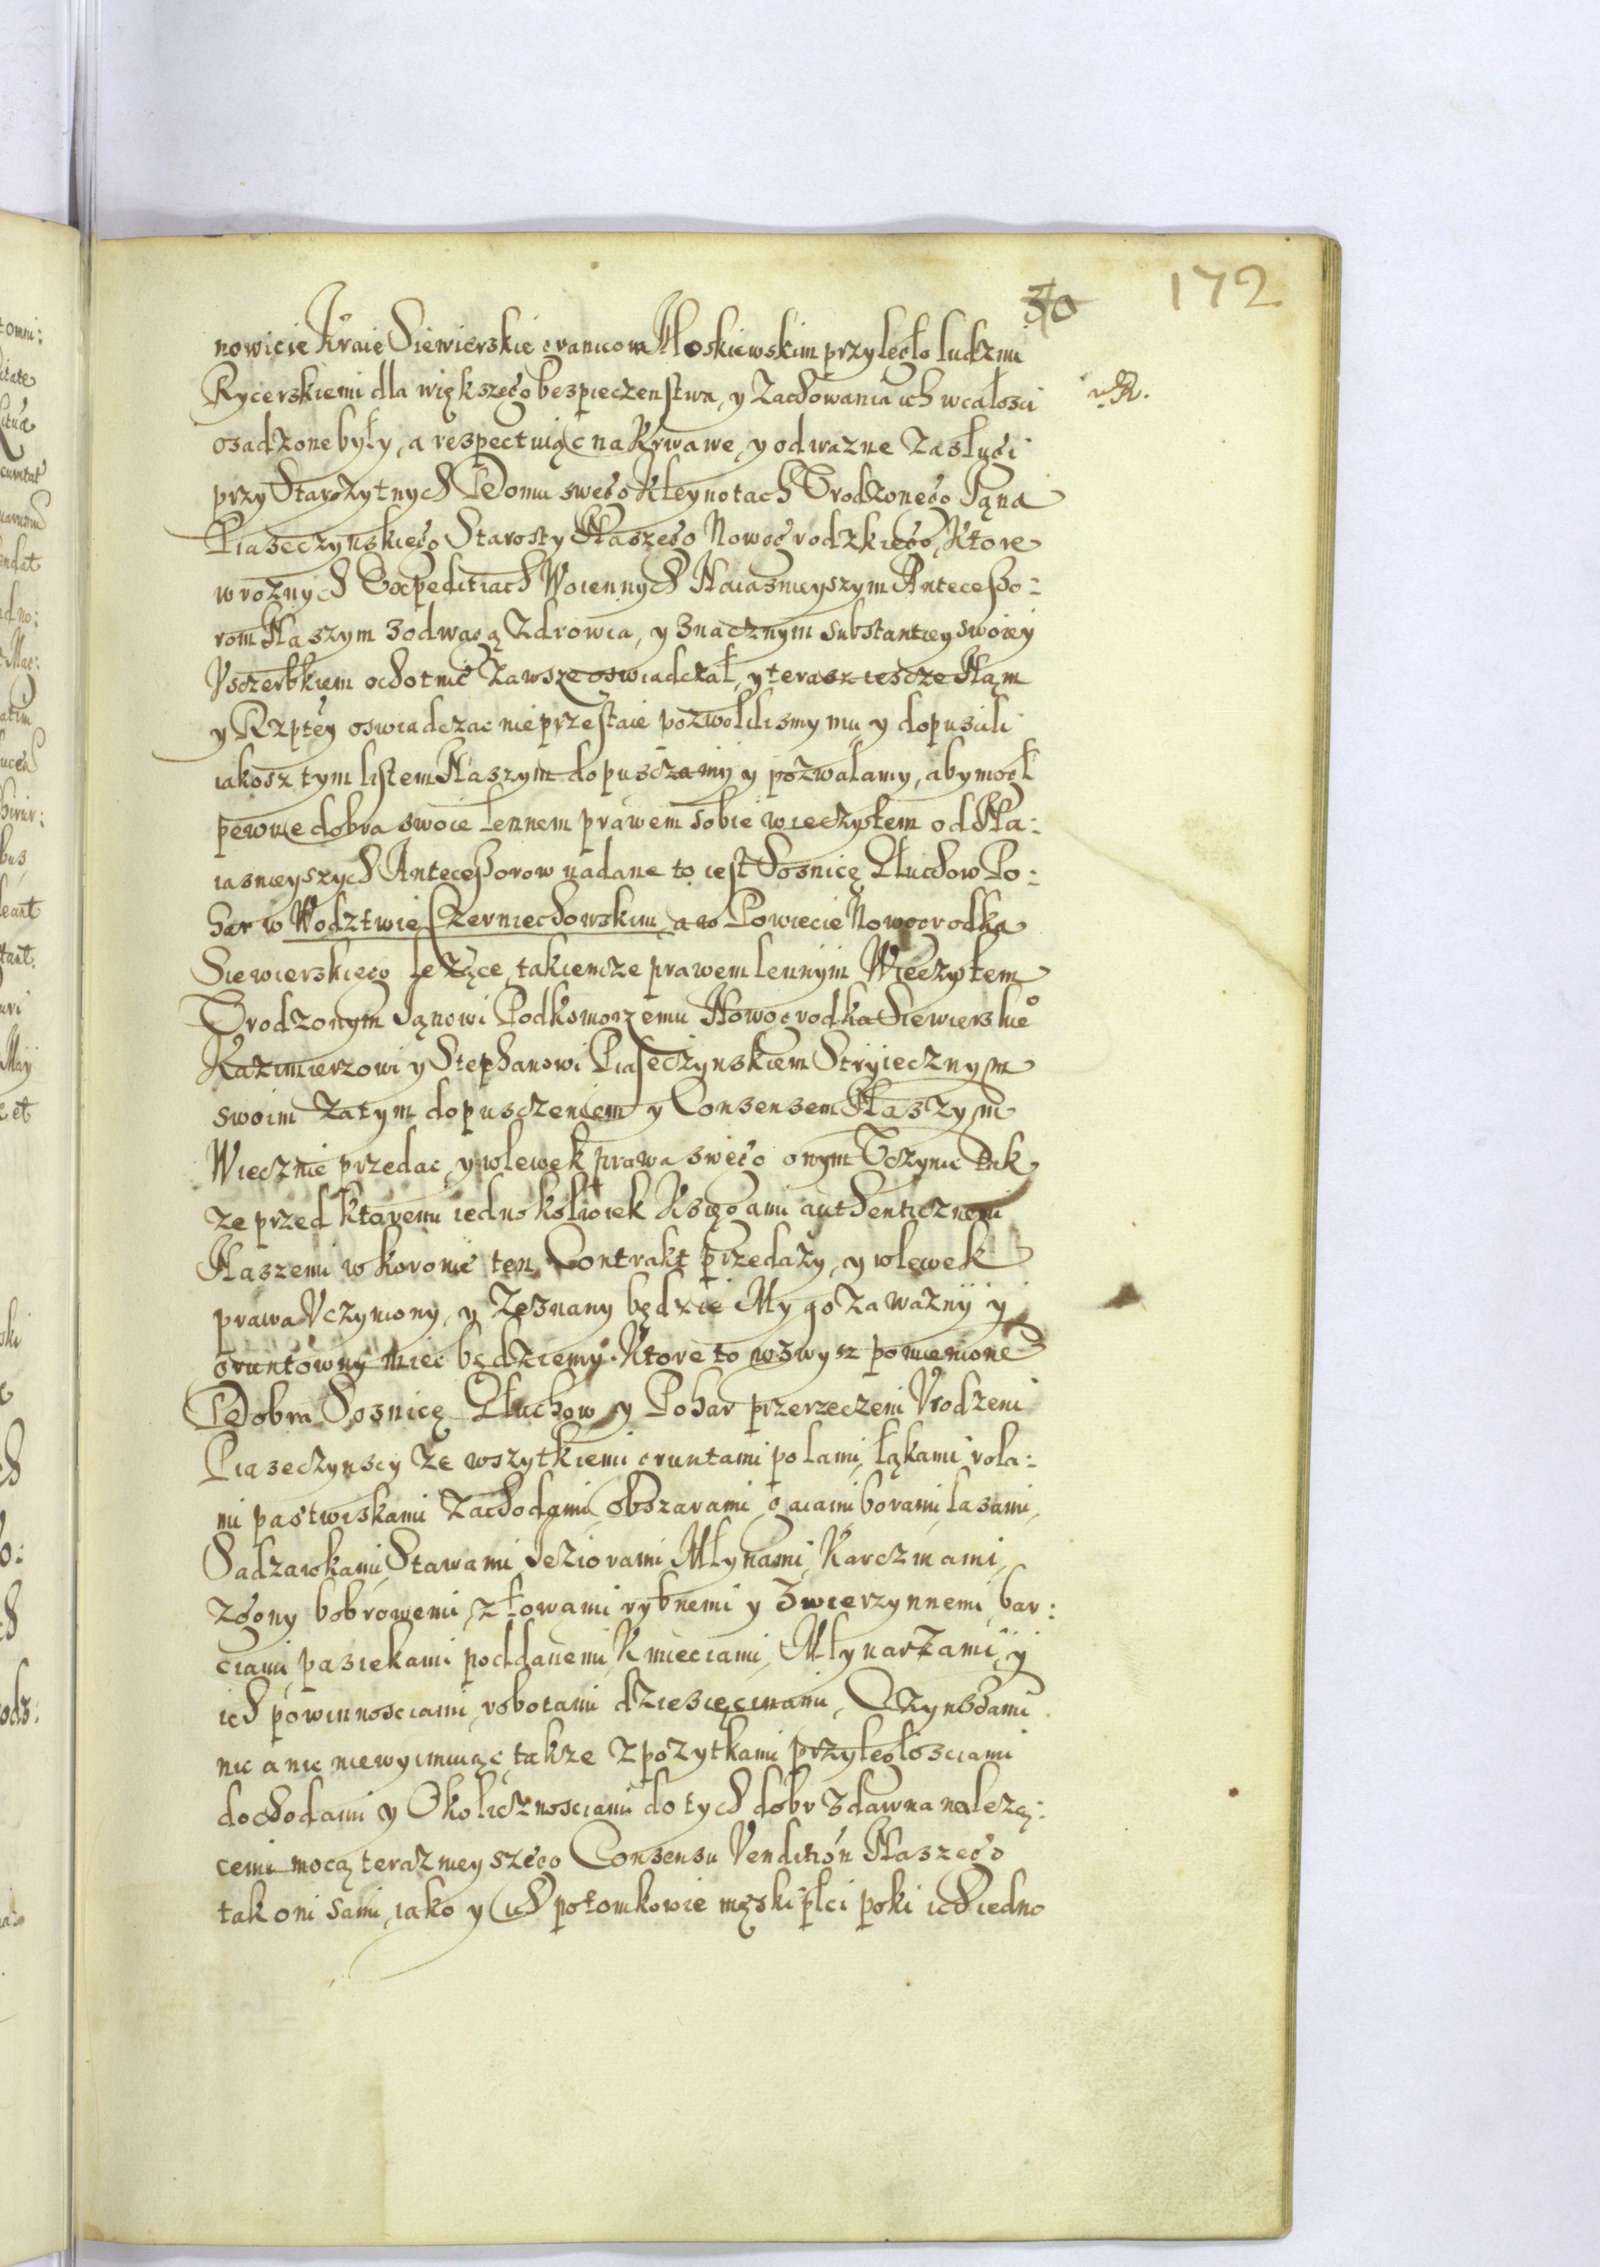 172
30
nowicie Kraie Siewierskie granicom Moskiewskim przyległo ludzmi
Rycerskiemi dla większego bespieczenstwa, y Zachowania ich wcałosci
osadzone były, a respectuiąc na Krwawe, y odwazne Zasługi
przy Starozytnych Domu swego Kleynotach Urodzonego Pąna
Piaseczynskiego Starosty Naszego Nowogrodzkiego, Ktore
w roznych Expeditiach Woiennych Naiasnieyszym Antecesso:
rom Naszym z odwagą Zdrowia, y znacznym substantiey swoiey
Vsczerbkiem ochotnie Zawsze oswiadczał, y terasz iescze Nąm
y Rzptey oswiadczac nieprzestaie pozwolilismy mu, y dopuscili
iakosz tym listem Naszym dopusczamy y pozwalamy, aby mogł
pewne dobra swoie lennem prawem sobie wieczystem od Na:
iasnieyszych Antecessorow nadane to iest Sosnicę Głuchow Po:
har w Wodztwie Czerniechowskim a w Powiecie Nowogrodka
Siewierskiego leżące, takiemze prawem lennym Wieczystem
Urodzonym Janowi Podkomorzemu Nowogrodka Siewierskie°
Kazimierzowi y Stephanowi Piaseczynskiem Stryiecznym
swoim Za tym dopusczeniem y Consensem Naszym
Wiecznie przedac, y wlewek prawa swego onym Uczynic Tak
ze przed ktoremi iednokolwiek Księgami authenticznemi
Naszemi w koronie ten Contrakt przedaży, y wlewek
prawa Vczyniony, y Zeznany będzie My go za ważny y
gruntowny miec będziemy. Ktore to wzwysz pomienione
Dobra Sosnicę Głuchow y Pohar przerzeczeni Vrodzeni
Piaseczynscy ze wszytkiemi gruntami polami, łąkami, rola:
mi pastwiskami Zachodami, obszarami, gaiami borami, lasami,
Sadzawkami, Stawami, Jeziorami Młynami, Karczmami,
zgony bobrowemi, z łowami rybnemi y zwierzynnemi, bar:
ciami, pasiekami poddanemi, Kmieciami, Młynarzami, y
ich powinnosciami, robotami dziesięcinami, Czynszami
nic a nic niewyimuiąc, takze z pożytkami przyległosciami
dochodami y Okolicznosciami do tych dobr zdawna należą:
cemi mocą teraznieyszego Consensu Venditión Naszego
tak oni sami, iako y ich potomkowie męski płci poki ich iedno